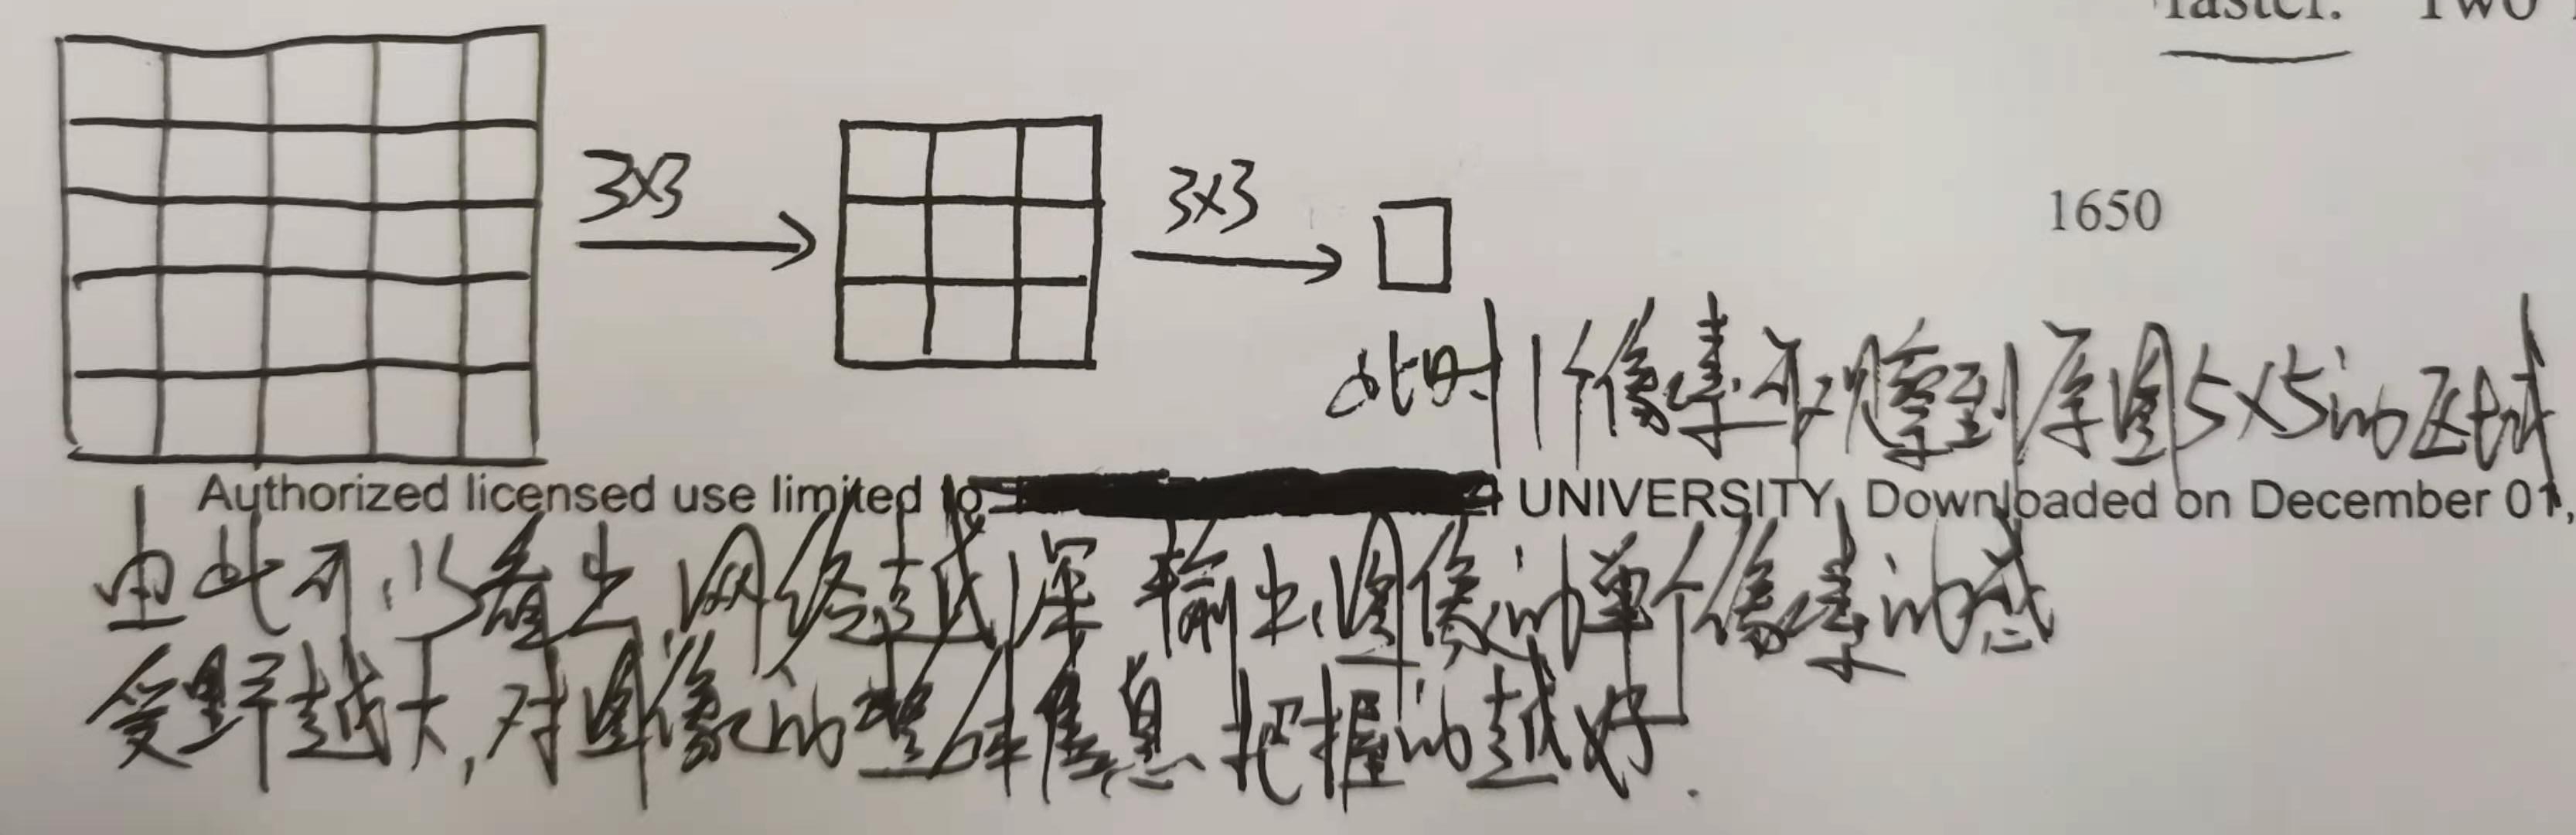 faster. Two
3×3
3×3
1650
此时1个像素可观察到原图5×5的区域
Authorized licensed use limited to UNIVERSITY. Downloaded on December 01,
由此可以看出,网络越深 输出图像的单个像素的感
受野越大,对图像的整体信息把握的越好.